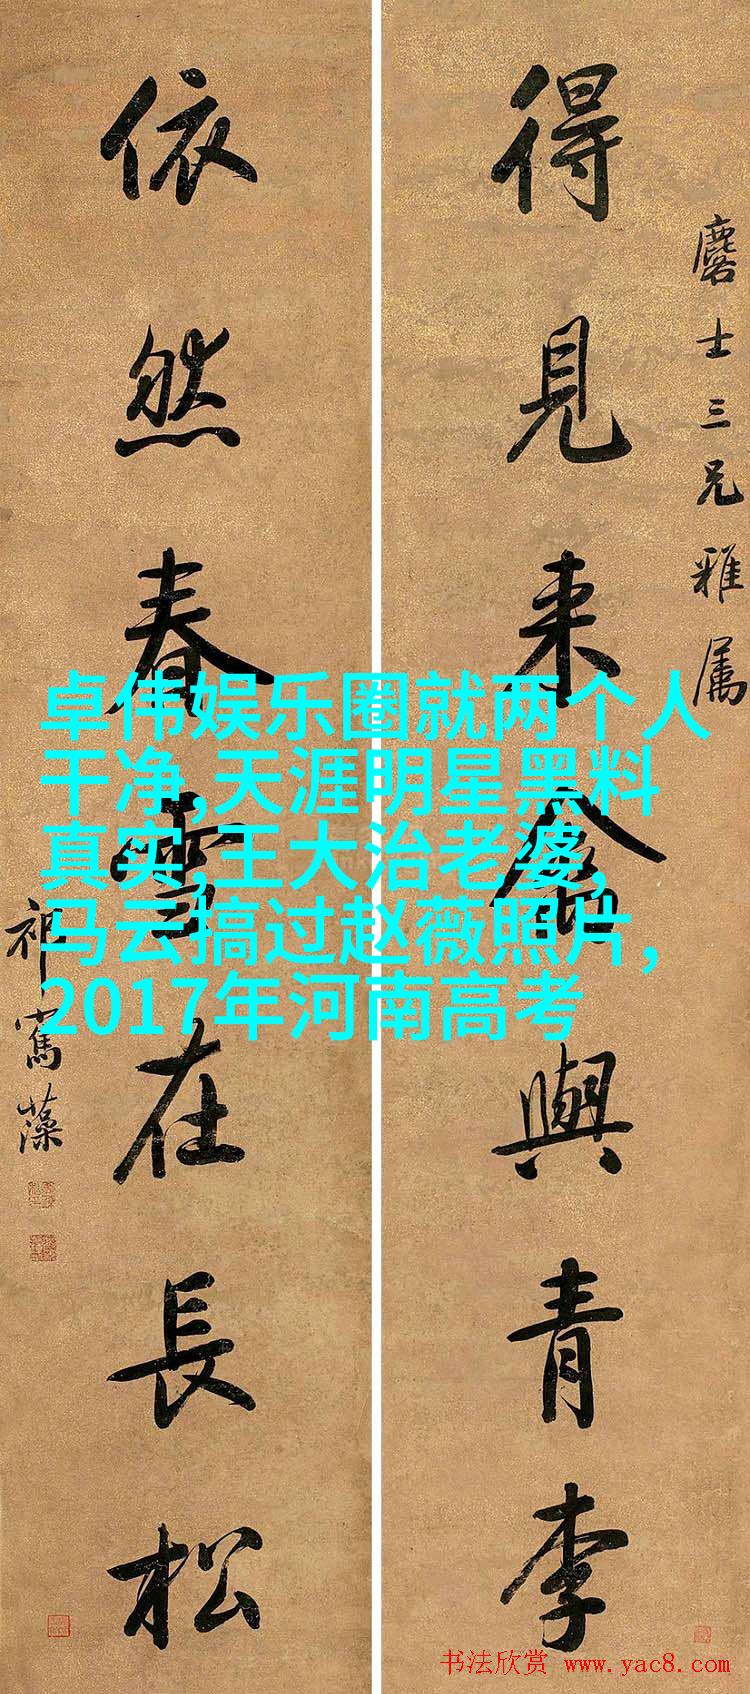 得見来禽與青李
麐士三兄雅属
依然春雪在長松
祁寯藻
卓伟娱乐圈就两个人
干净,天涯明星黑料
真实,王大治老婆,
马云搞过赵薇照片,
2017年河南高考
书法欣赏 www.yac8.com